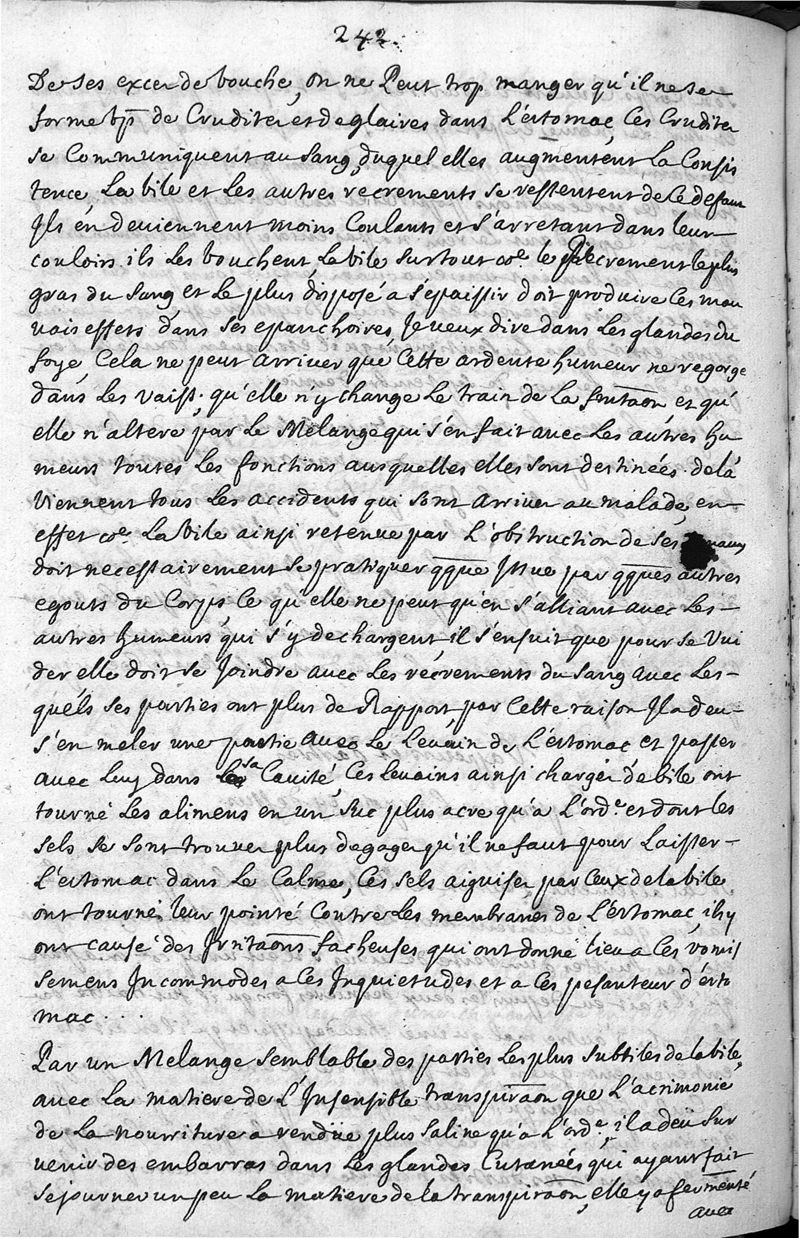 242.
De ses excez de bouche, on ne Peut trop manger qu'il ne se
forme bp̄ de Cruditez et de glaires dans L'estomac, Ces Cruditez
se Communiquent au sang, duquel elles augmentent La Consis
tence, La bile et Les autres récrements se ressentent de Ce defaut
Ils en deviennent moins Coulants et s'arretant dans leur
couloirs ils Les bouchent La bile surtout coe. le Récrement le plus
gras du Sang et Le plus disposé a s'épaissir doit produire Ces mau
vais effets dans ses epanchoires, Je veux dire dans Les glandes du
foye, Cela ne peut arriver que Cette ardente humeur ne regorge
dans Les vaiss. qu'elle n'y change Le train de La fontaon, et qu'
elle n'altere par Le Mélange qui s'en fait avec Les autres hu
meurs toutes Les fonctions ausquelles elles sont destinées. de la
Viennent tous Les accidents qui sont arrivez au malade, en
effet coe. La bile ainsi retenue par L'obstruction de ses
doit necessairement se pratiquer qque Issue par qques autres
egouts du Corps Ce qu'elle ne peut qu'en s'alliant avec Les
autres humeurs qui s'y dechargent il s'ensuit que pour se Vui
der elle doit se Joindre avec Les récrements du Sang avec Les
quels ses parties ont plus de Rapport, par Cette raison Il a deu
s'en meler une partie avec Le Levain de L'estomac et passer
avec Luy dans sa Cavité, Ces Levains ainsi chargez de bile ont
tourné Les alimens en un suc plus acre qu'a L'orde. et dont les
sels se sont trouvez plus degagez qu'il ne faut pour Laisser
L'estomac dans Le Calme, Ces sels aiguisez par Ceux de la bile
ont tourné leur pointe Contre Les membranes de L'estomac, ils y
ont causé des Irritaons facheuses qui ont donné lieu a Ces vomis
semens Incommodes a Ces Inquietudes et a Ces pesanteur d'esto
mac . . .
Par un Mélange semblable des parties Les plus subtiles de la bile,
avec La matiere de L'Insensible transpiraon que L'acrimonie
de La nourriture a rendüe plus saline qu'a L'orde., il a deü sur
venir des embarras dans Les glandes Cutanées qui ayant fait
sejourner un peu La matiere de la transpiraon, elle y a fermenté
avec